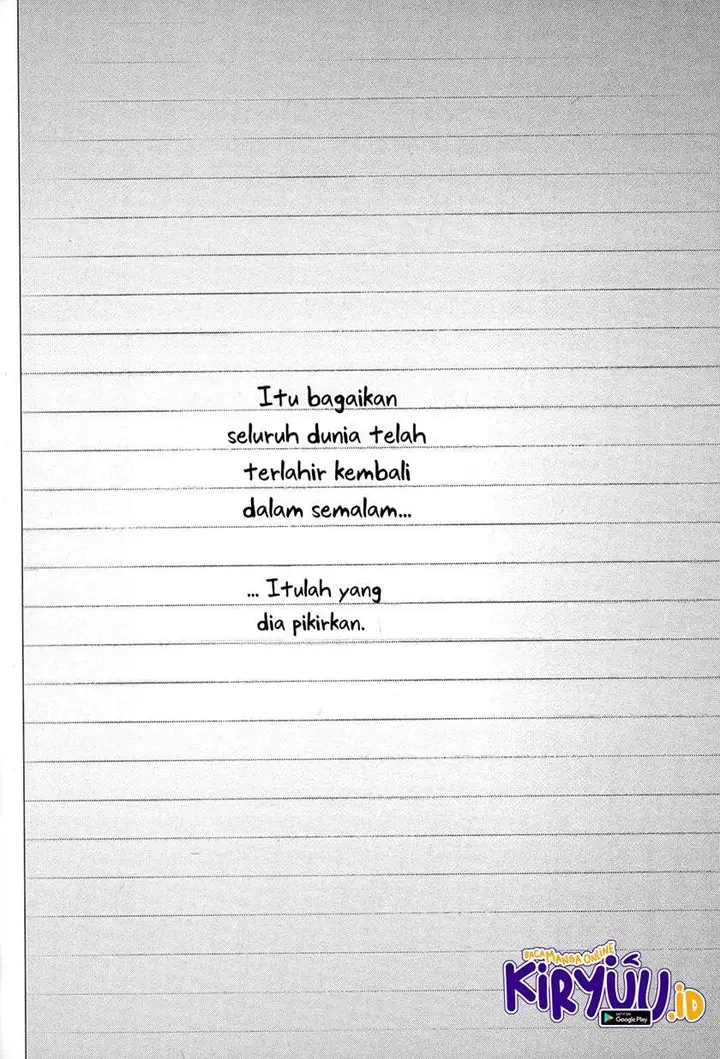 Itu bagaikan
seluruh dunia telah
terlahir kembali
dalam semalam...
... Itulah yang
dia pikirkan.
BACA MANGA ONLINE
KIRYUU.iD
GET IT ON
Google Play